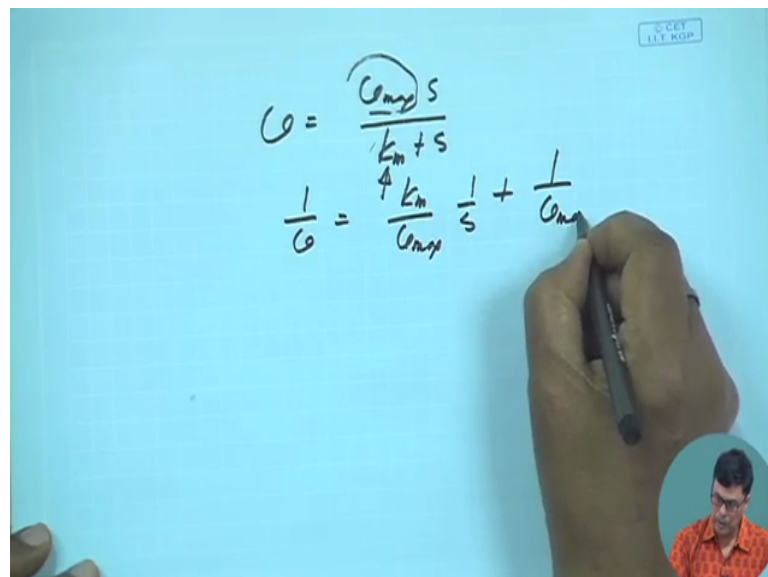 © CET
I.I.T. KGP
υ = υmax S / (km + S)
1/υ = km/υmax 1/S + 1/υmax